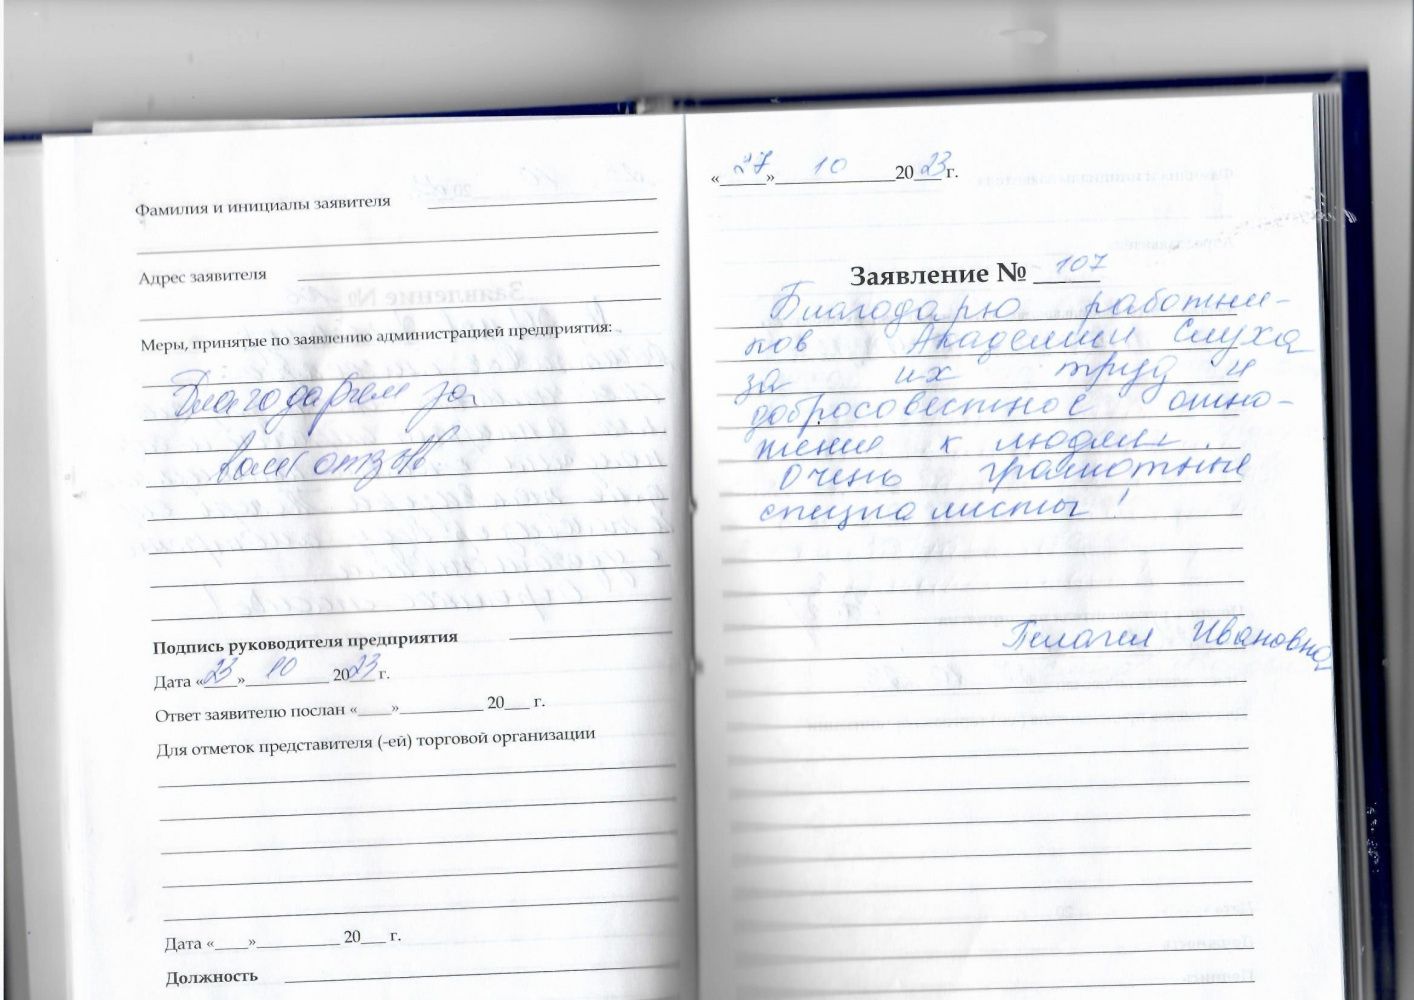 Фамилия и инициалы заявителя
Адрес заявителя
Меры, принятые по заявлению администрацией предприятия:
Благодарим за
Ваш отзыв
Подпись руководителя предприятия
Дата «23» 10 2023 г.
Ответ заявителю послан «____»__________ 20___ г.
Для отметок представителя (-ей) торговой организации
Дата «____»__________ 20___ г.
Должность
«27» 10 2023 г.
Заявление № 107
Благодарю работни-
ков Академии Слуха
за их труд и
добросовестное отно-
шение к людям.
Очень грамотные
специалисты!
Пелагея Ивановна